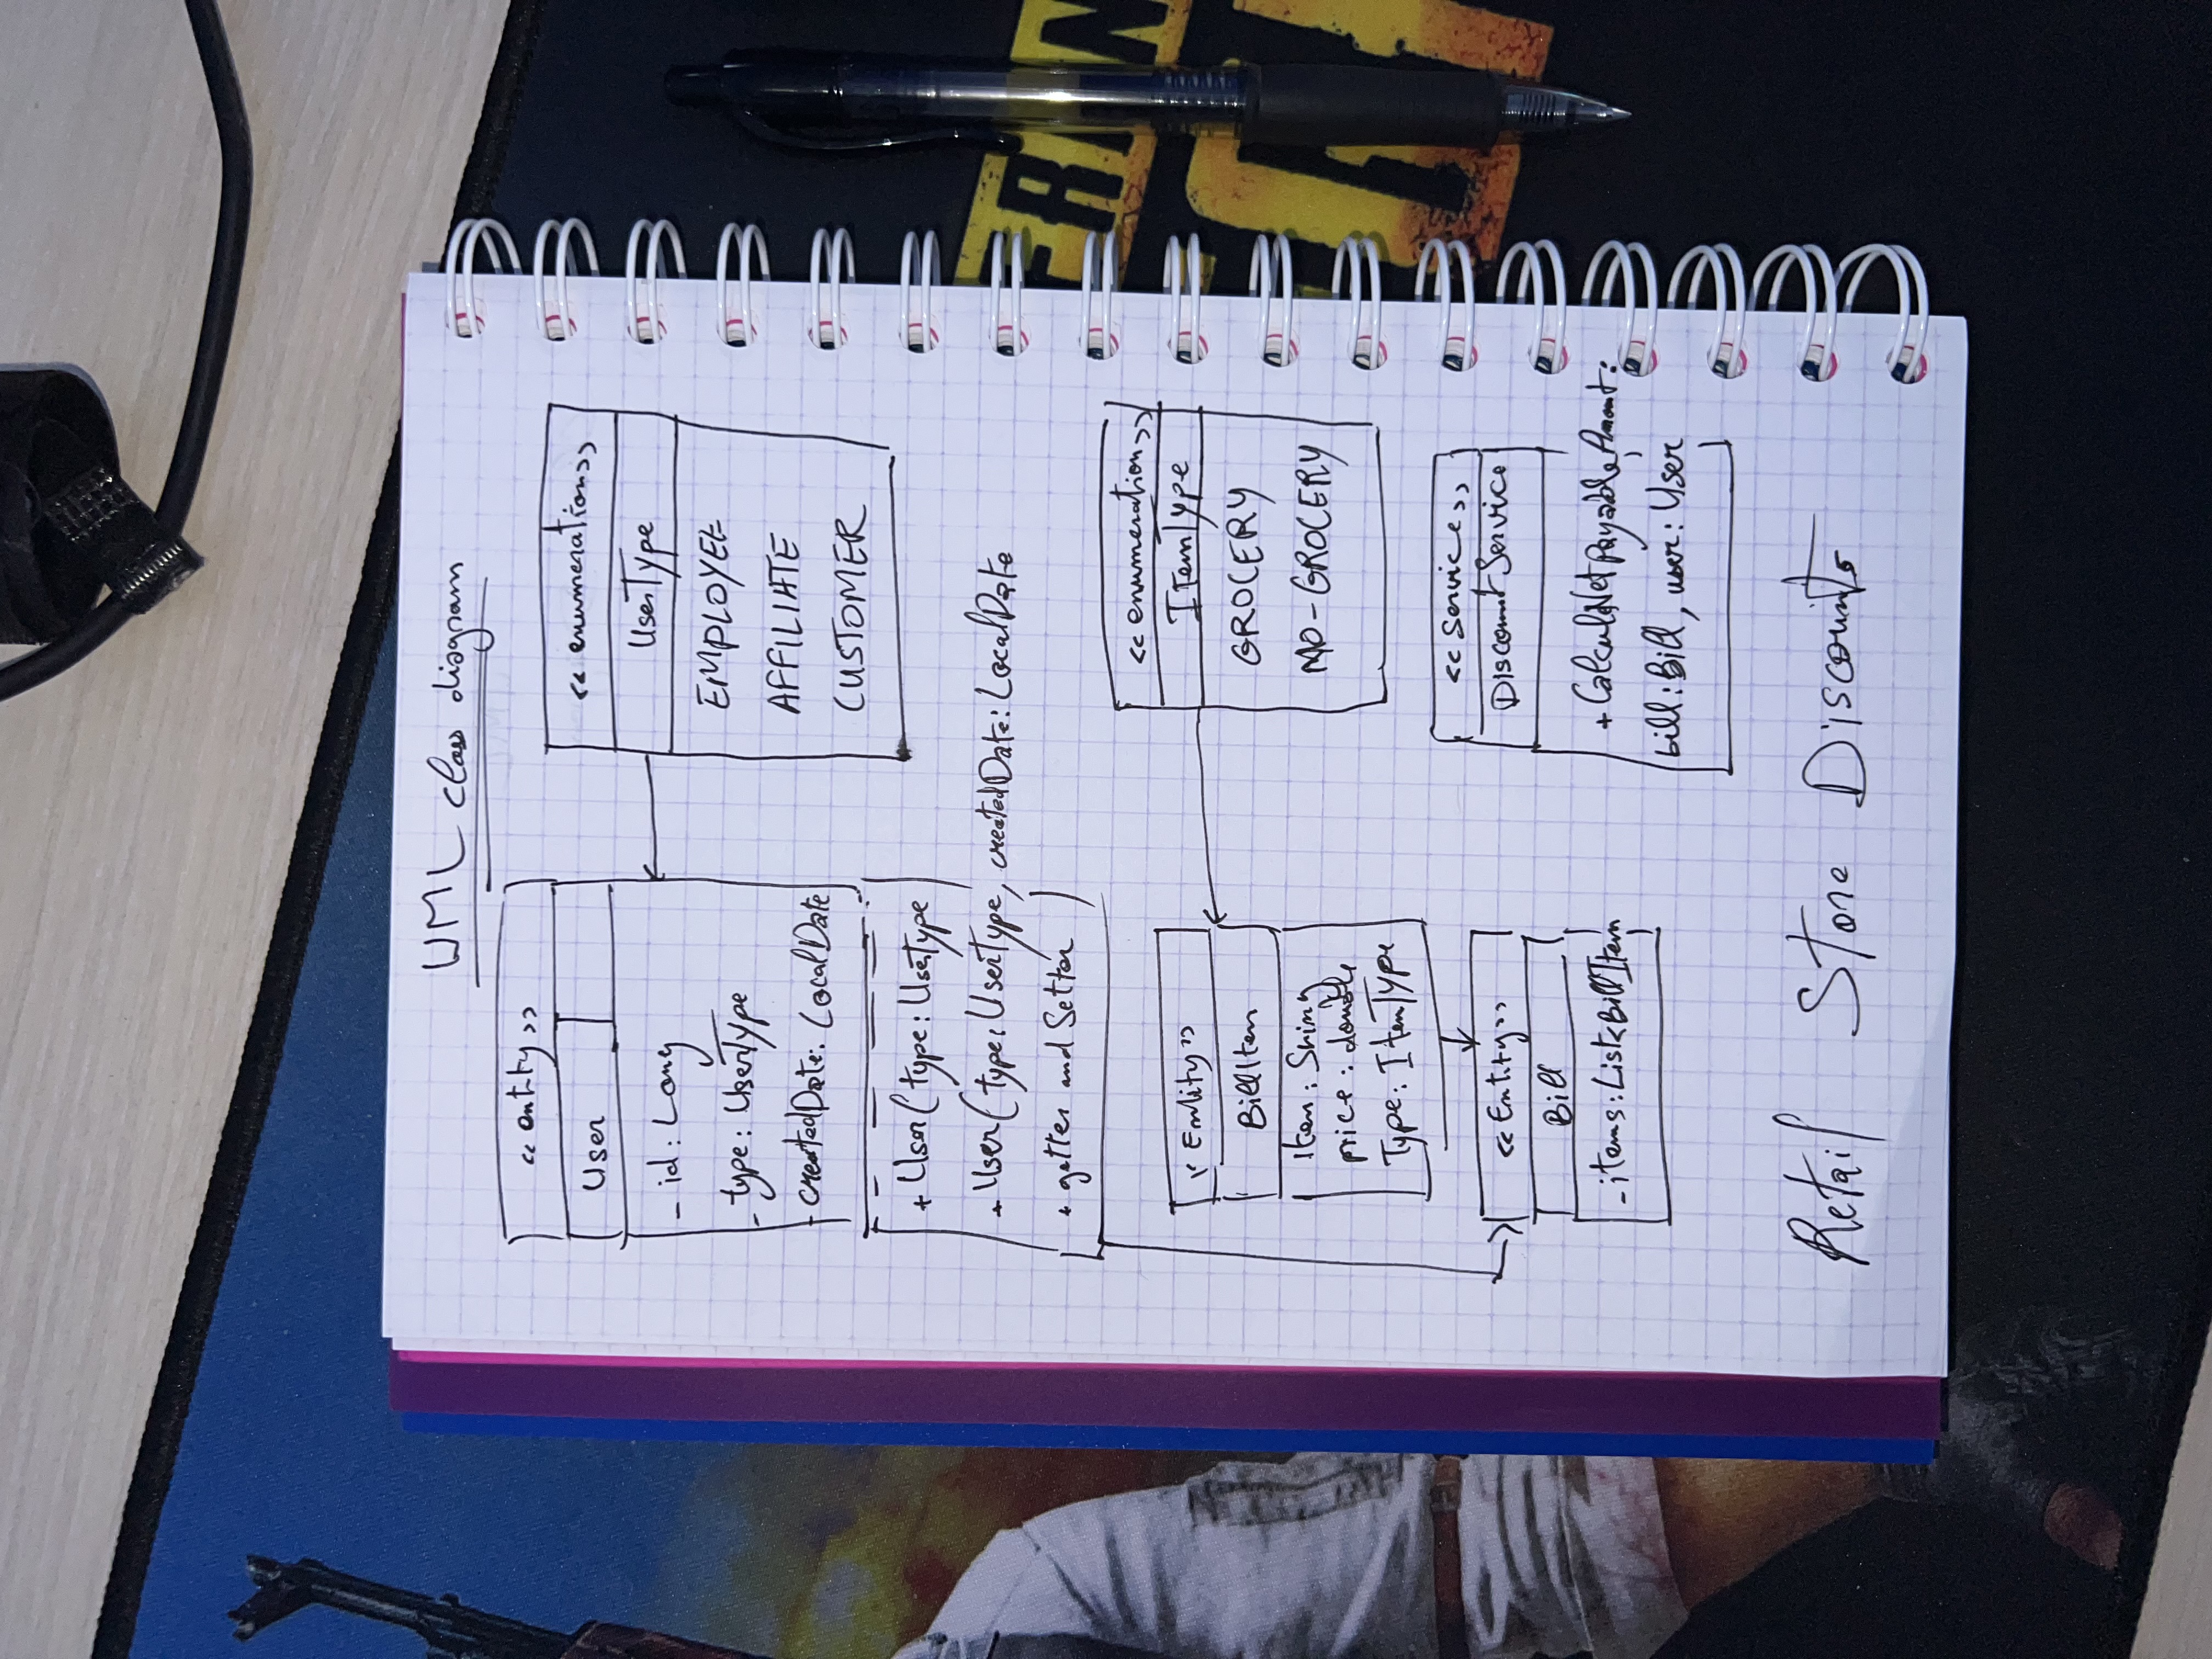 UML class diagram
<< entity >>
User
- id: Long
- type: UserType
- createdDate: LocalDate
+ User(type: UserType
+ User(type: UserType, createdDate: LocalDate
+ getter and Setter )
<< enumeration >>
UserType
EMPLOYEE
AFFILIATE
CUSTOMER
<< enumeration >>
ItemType
GROCERY
NO-GROCERY
<< Entity >>
BillItem
Item: String
price: double
Type: ItemType
<< Entity >>
Bill
- items: List<BillItem
<< Service >>
DiscountService
+ CalculNetPayableAmont:
bill: Bill, user: User
Retail Store Discounts